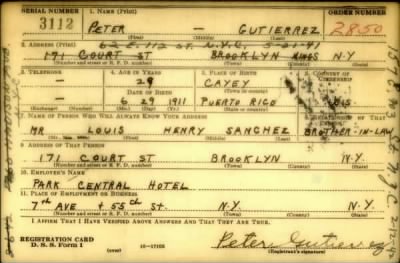 SERIAL NUMBER 1. NAME (Print)
3112 PETER - GUTIERREZ 2850
62 E. 112 ST. N.Y.C. 5-21-41
2. ADDRESS (Print)
171 COURT ST BROOKLYN KINGS N.Y
(Number and street or R. F. D. number) (Town) (County) (State)
3. TELEPHONE 4. AGE IN YEARS 5. PLACE OF BIRTH 6. COUNTRY OF CITIZENSHIP
- 29 CAYEY
DATE OF BIRTH
- 6 29 1911 PUERTO RICO U.S.
(Exchange) (Number) (Mo.) (Day) (Yr.) (State or country)
7. NAME OF PERSON WHO WILL ALWAYS KNOW YOUR ADDRESS 8. RELATIONSHIP OF THAT PERSON
MR LOUIS HENRY SANCHEZ BROTHER-IN-LAW
9. ADDRESS OF THAT PERSON
171 COURT ST BROOKLYN N.Y.
(Number and street or R. F. D. number) (Town) (County) (State)
10. EMPLOYER'S NAME
PARK CENTRAL HOTEL
11. PLACE OF EMPLOYMENT OR BUSINESS
7th AVE + 55th ST. N.Y. N.Y.
(Number and street or R. F. D. number) (Town) (County) (State)
I AFFIRM THAT I HAVE VERIFIED ABOVE ANSWERS AND THAT THEY ARE TRUE.
REGISTRATION CARD
D. S. S. Form 1 (over) 16-17105 Peter Gutierrez
(Registrant's signature)